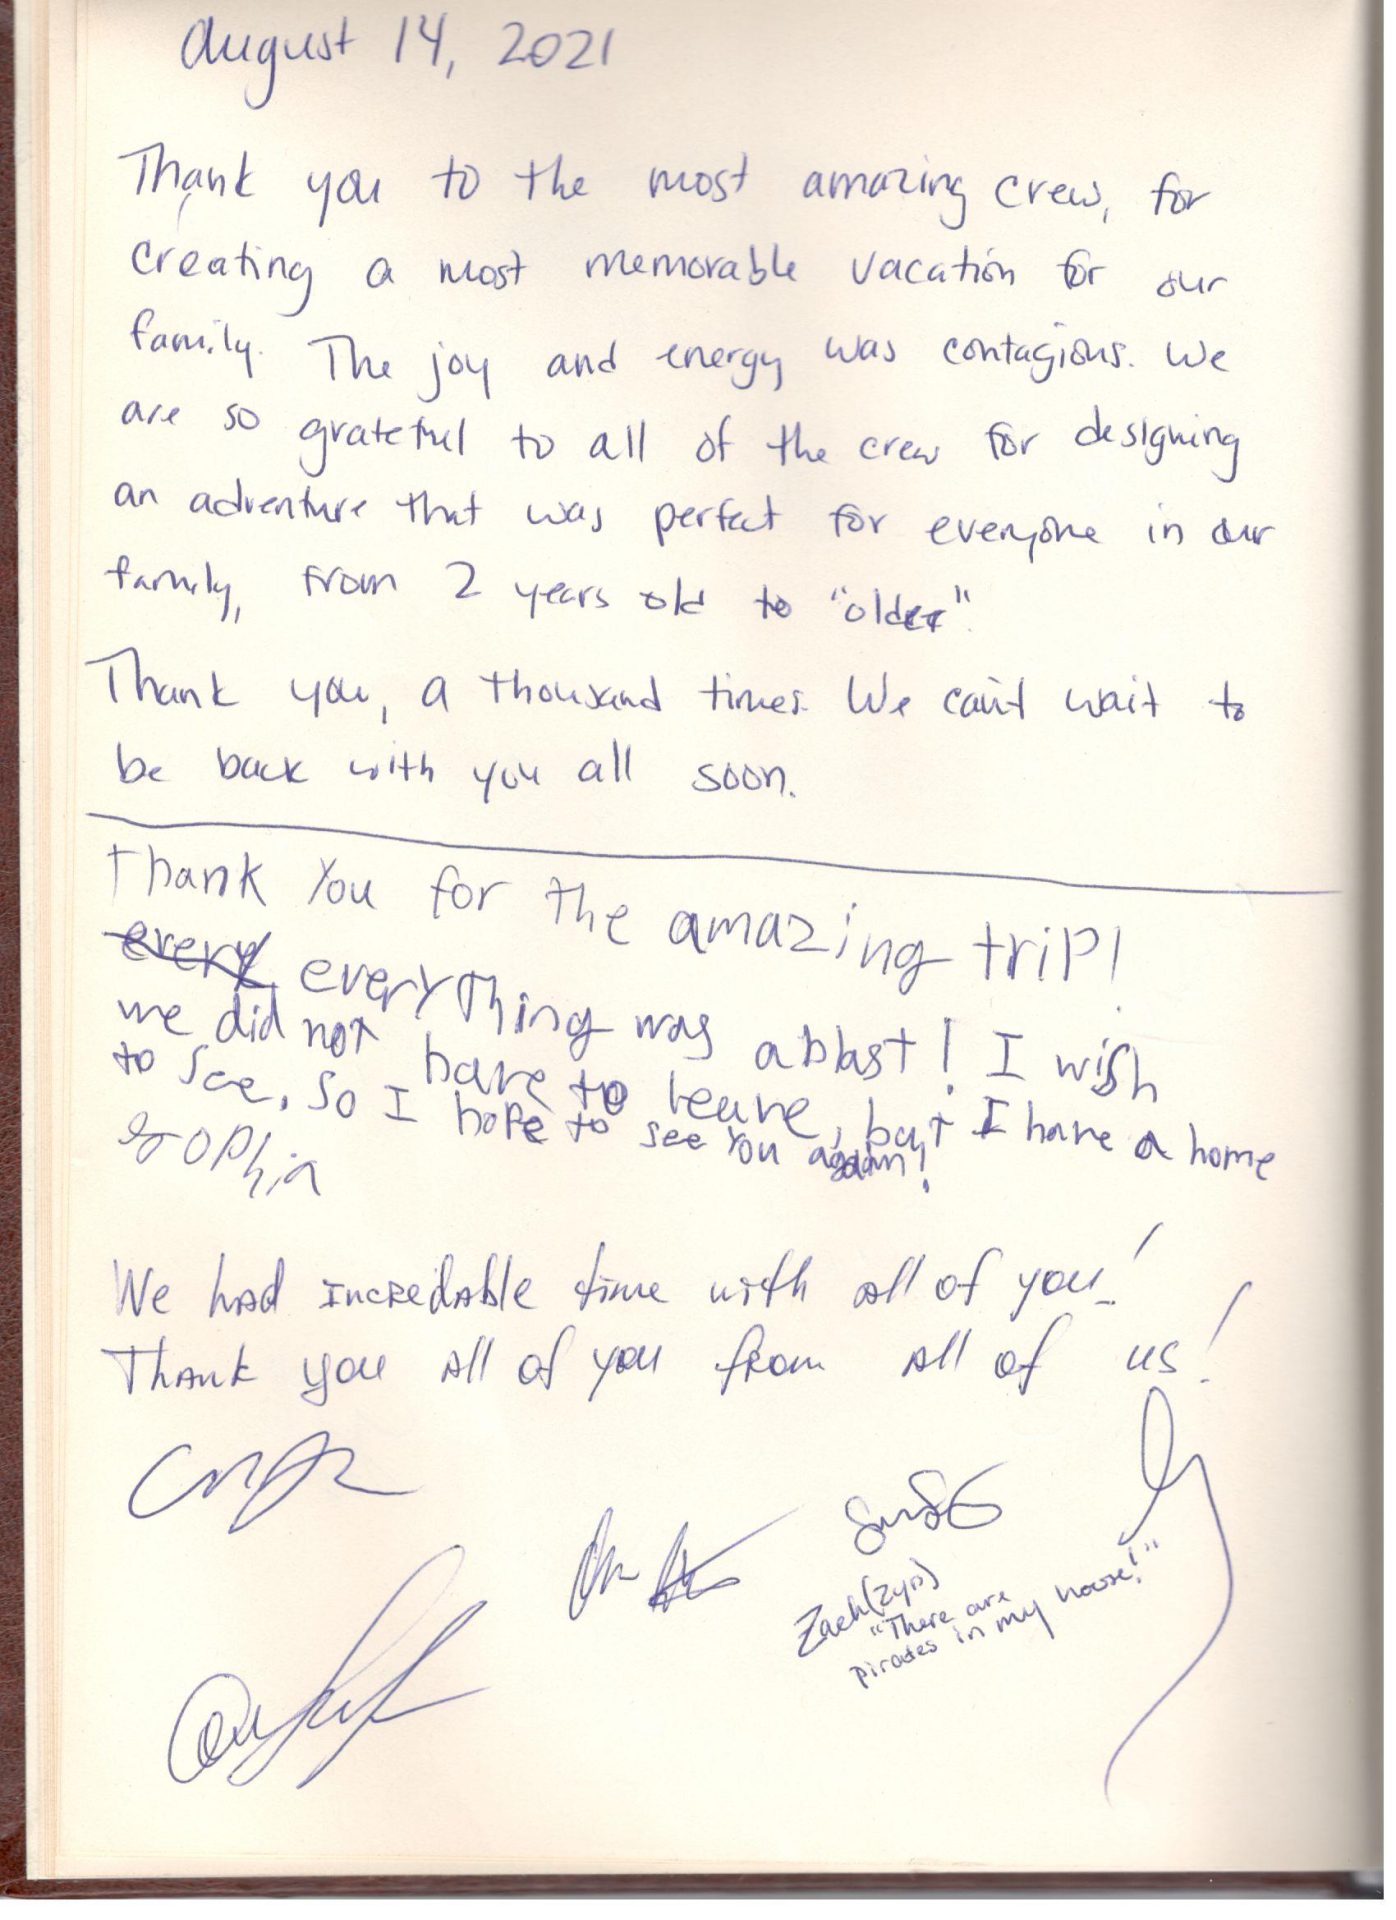 August 14, 2021
Thank you to the most amazing crew, for
creating a most memorable vacation for our
family. The joy and energy was contagious. We
are so grateful to all of the crew for designing
an adventure that was perfect for everyone in our
family, from 2 years old to "older".
Thank you, a thousand times. We can't wait to
be back with you all soon.
Thank You for the amazing trip!
every everything was a blast! I wish
we did not have to leave, but I have a home
to see. So I hope to see you again!
Sophia
We had incredable time with all of you!
Thank you all of you from all of us!
Zach (2yrs)
"There are
pirates in my house!"